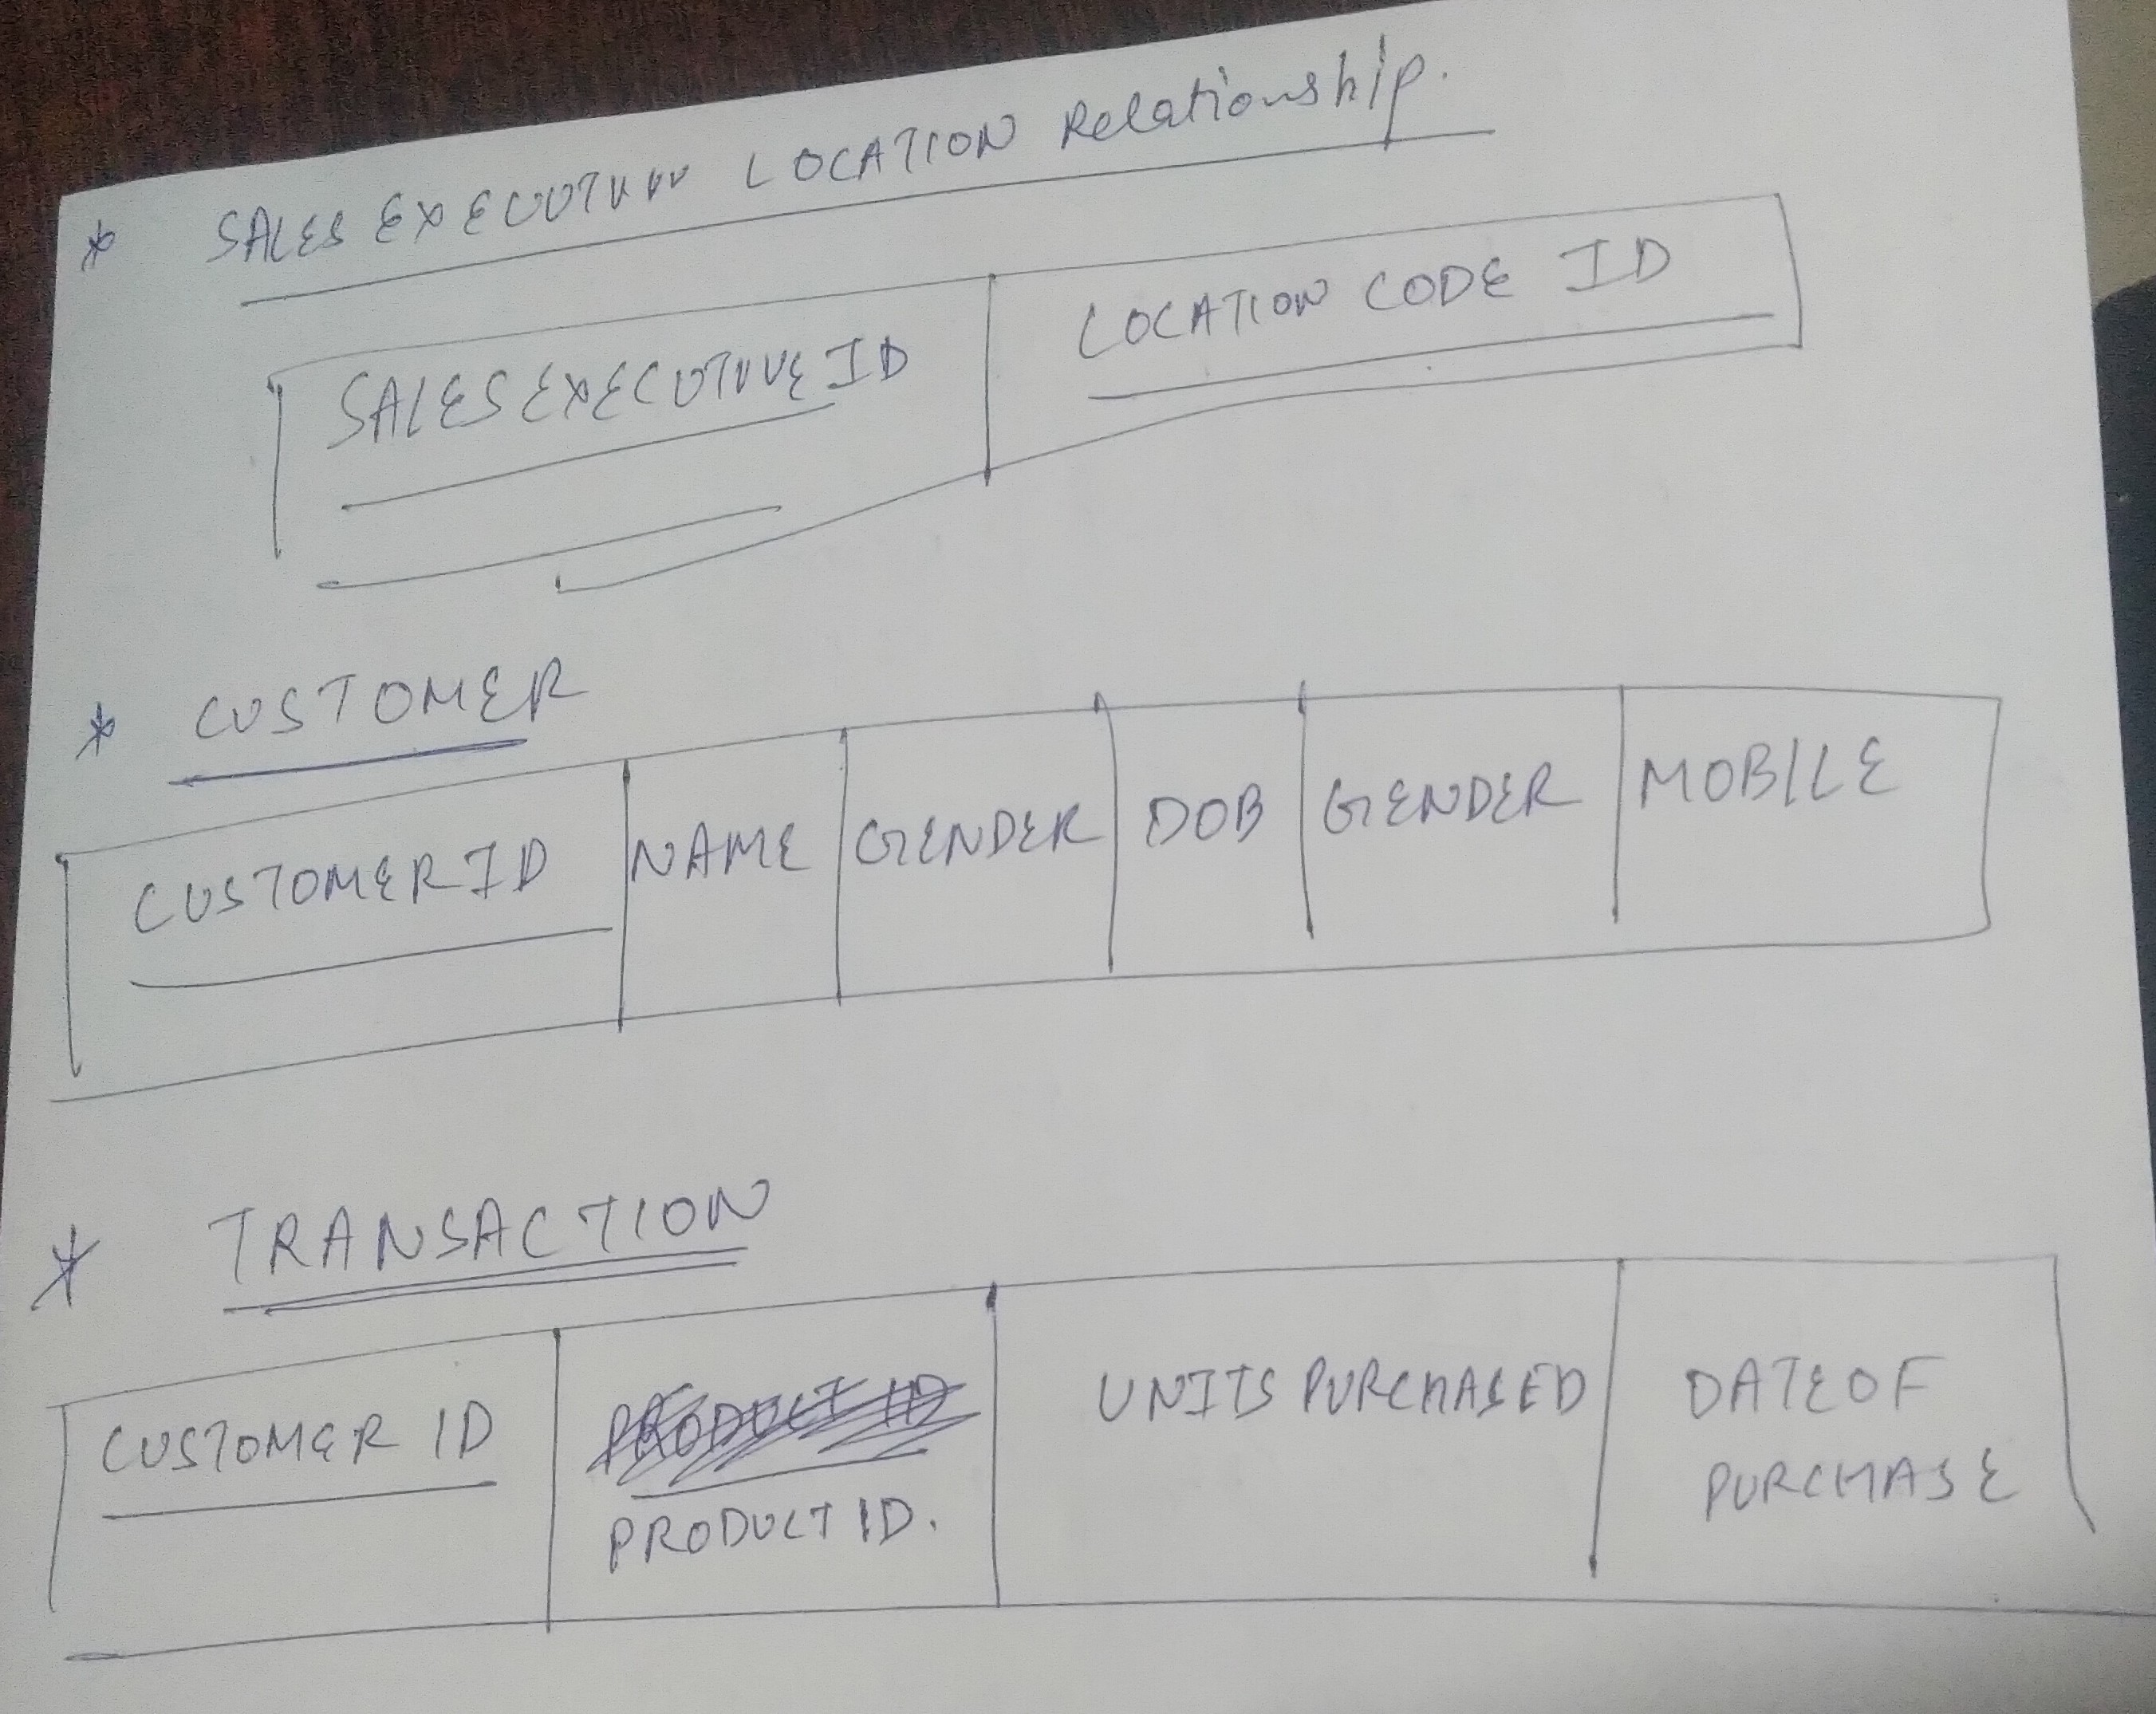 * SALES EXECUTIVE LOCATION Relationship.
SALES EXECUTIVE ID LOCATION CODE ID
* CUSTOMER
CUSTOMER ID NAME GENDER DOB GENDER MOBILE
* TRANSACTION
CUSTOMER ID PRODUCT ID UNITS PURCHASED DATE OF
PRODUCT ID. PURCHASE